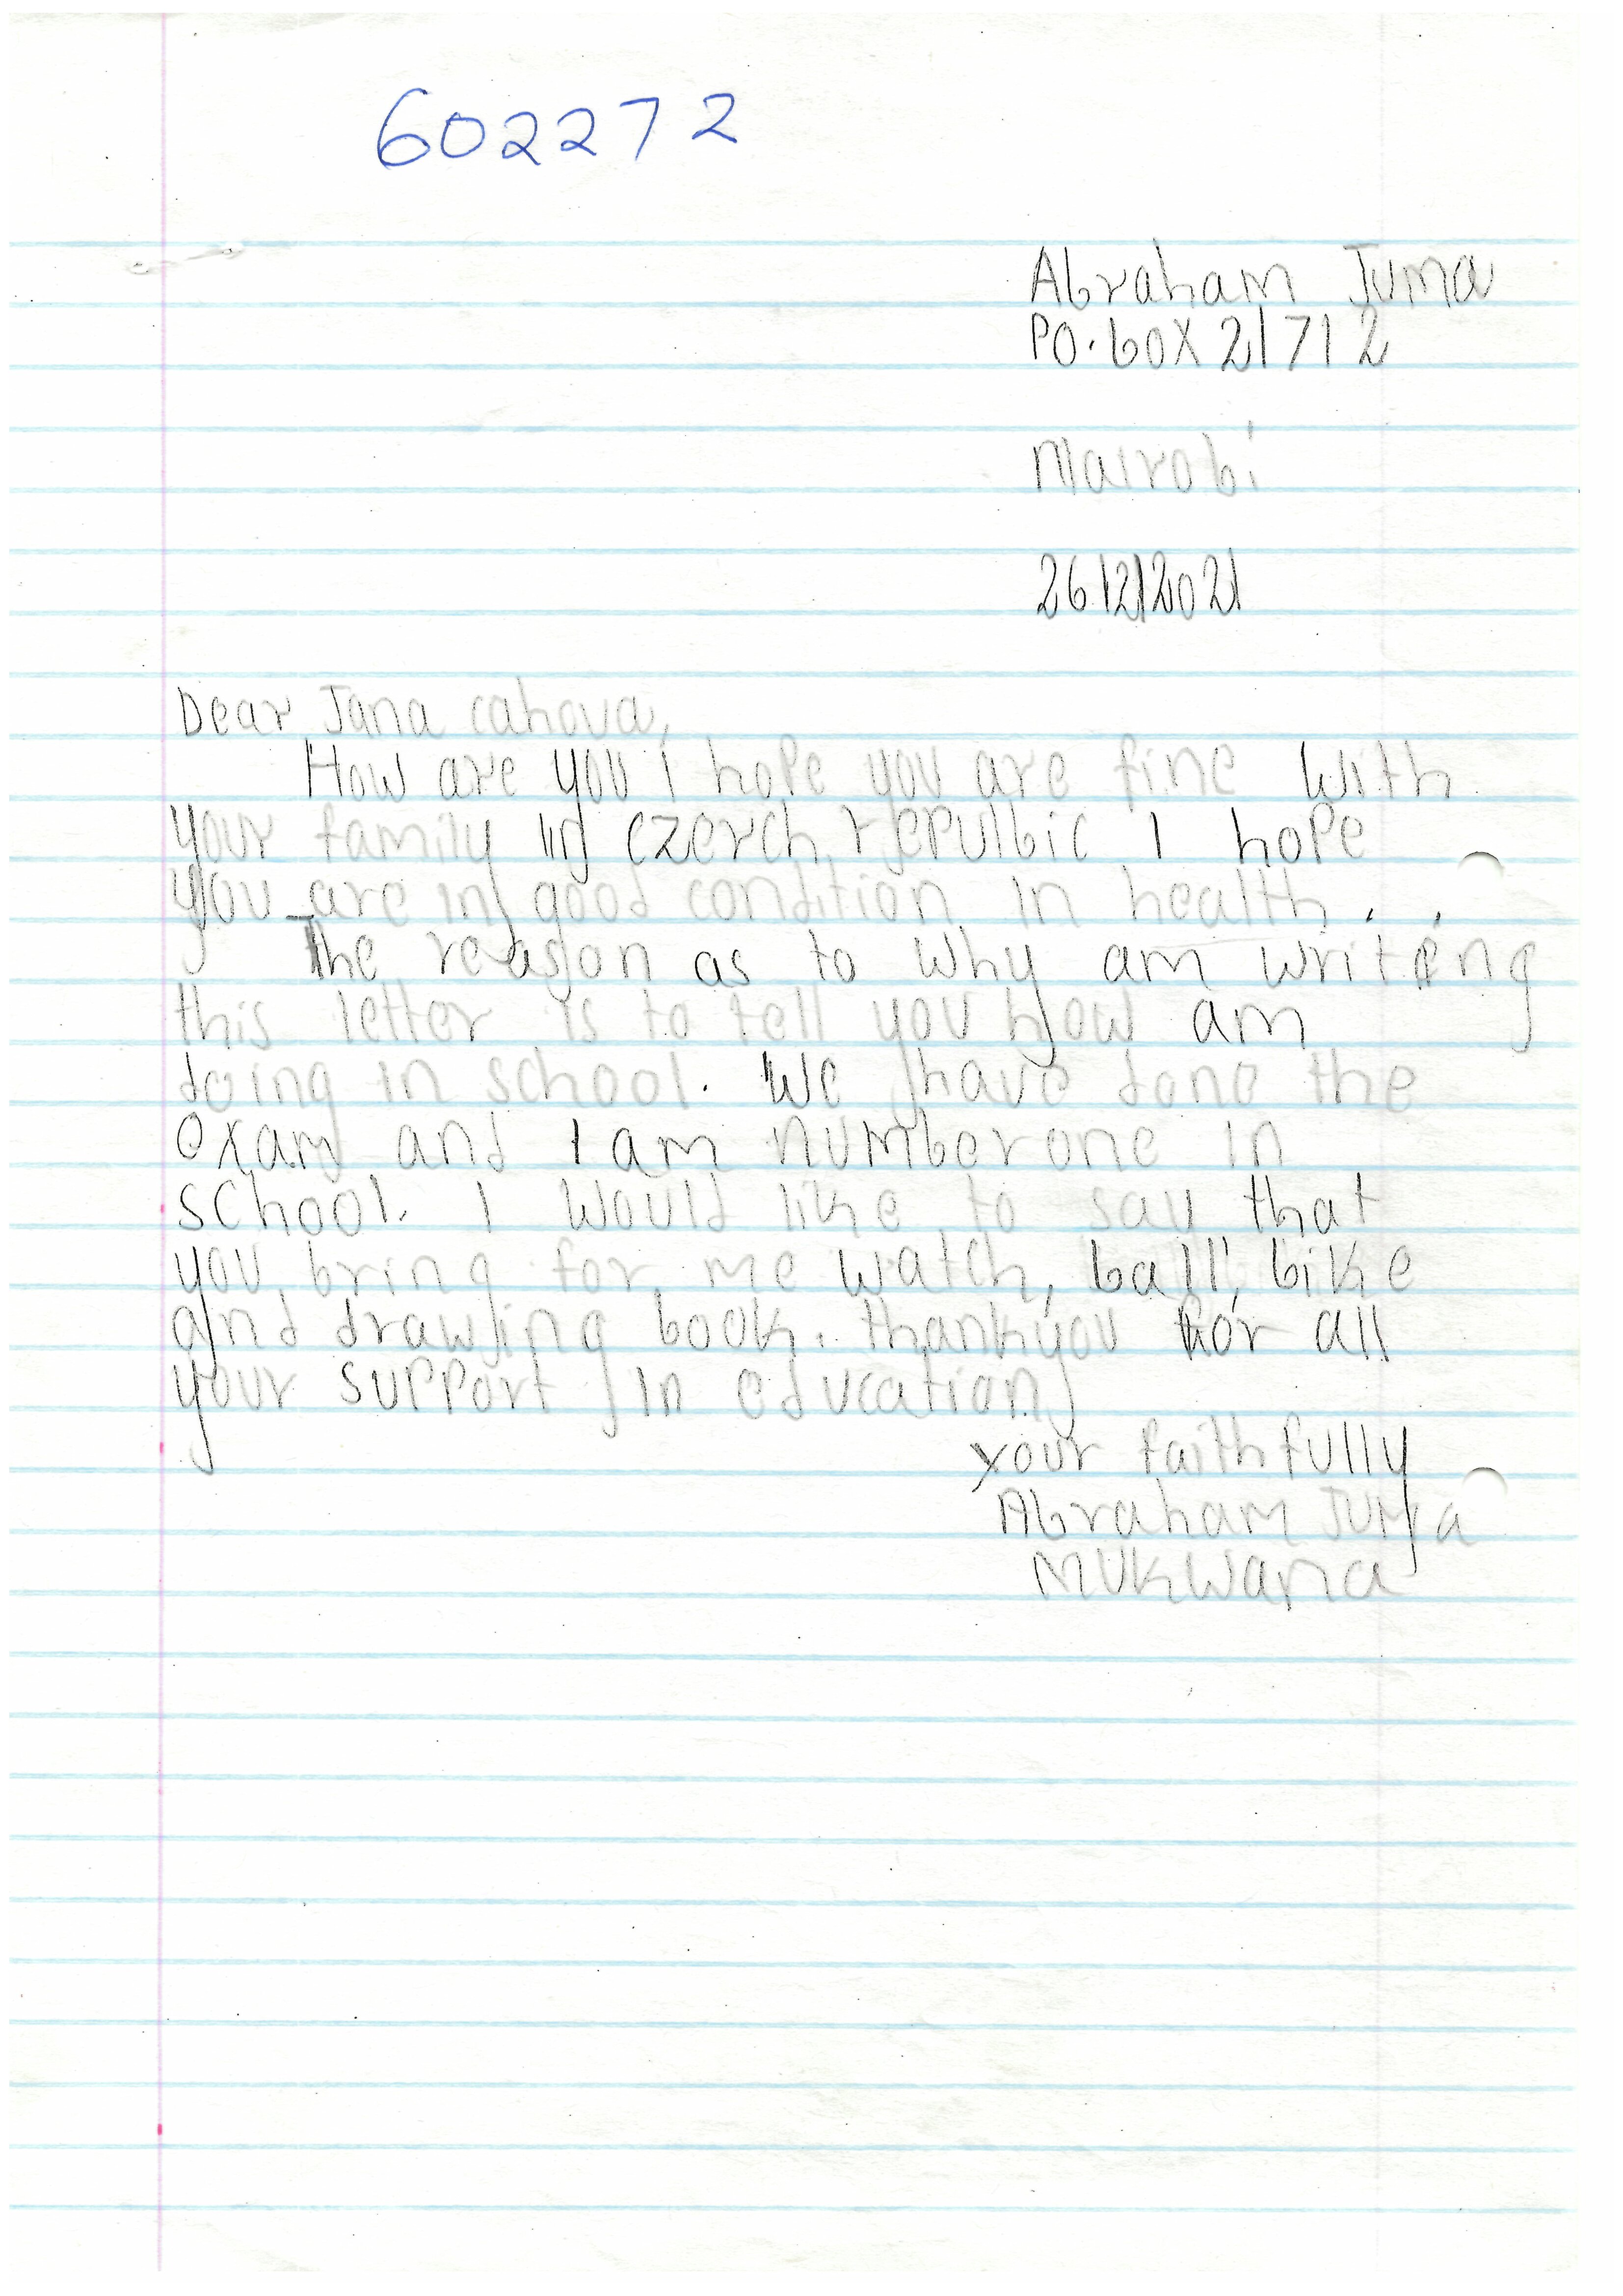 602272
Abraham Juma
PO. box 21712
Nairobi
26/2/2021
Dear Jana cahova,
How are you i hope you are fine with
your family in czerch repulbic I hope
you are in good condition in health.
The reason as to why am writing
this letter is to tell you how am
doing in school. We have done the
exam and I am number one in
school. I would like to say that
you bring for me watch, ball, bike
and drawing book. thankyou for all
your support in education
your faithfully
Abraham Juma
Mukwana